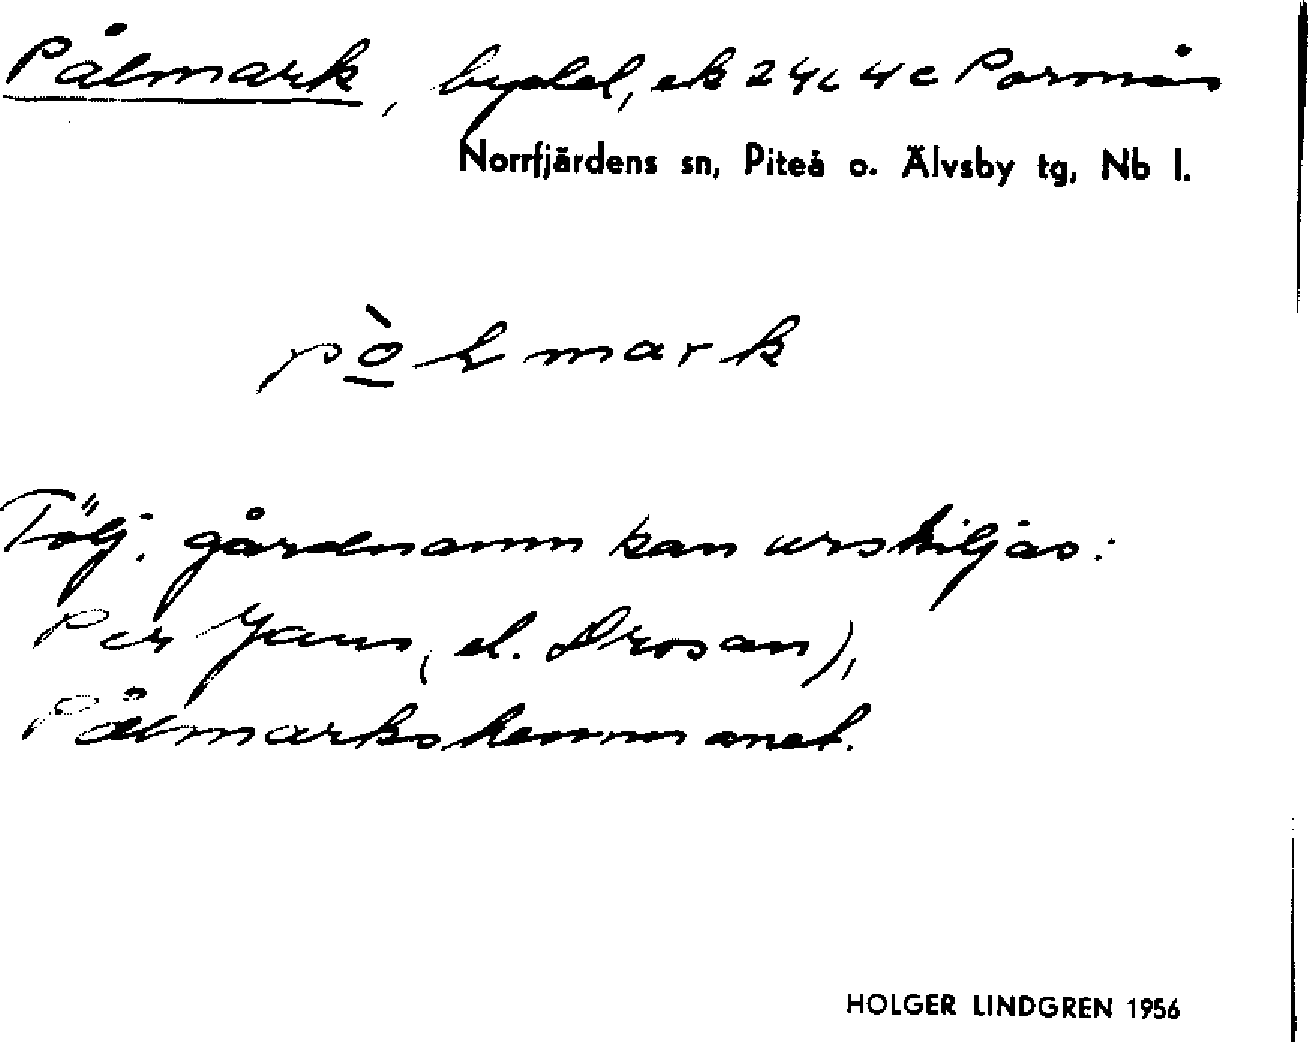 Pålmark, bydel, ek 24c 4c Porsnäs
Norrfjärdens sn, Piteå o. Älvsby tg, Nb l.
pò̲lmark
Följ. gårdnamn kan urskiljas:
Per Jans, el. Drosan),
Pålmarkshemmanet.
HOLGER LINDGREN 1956